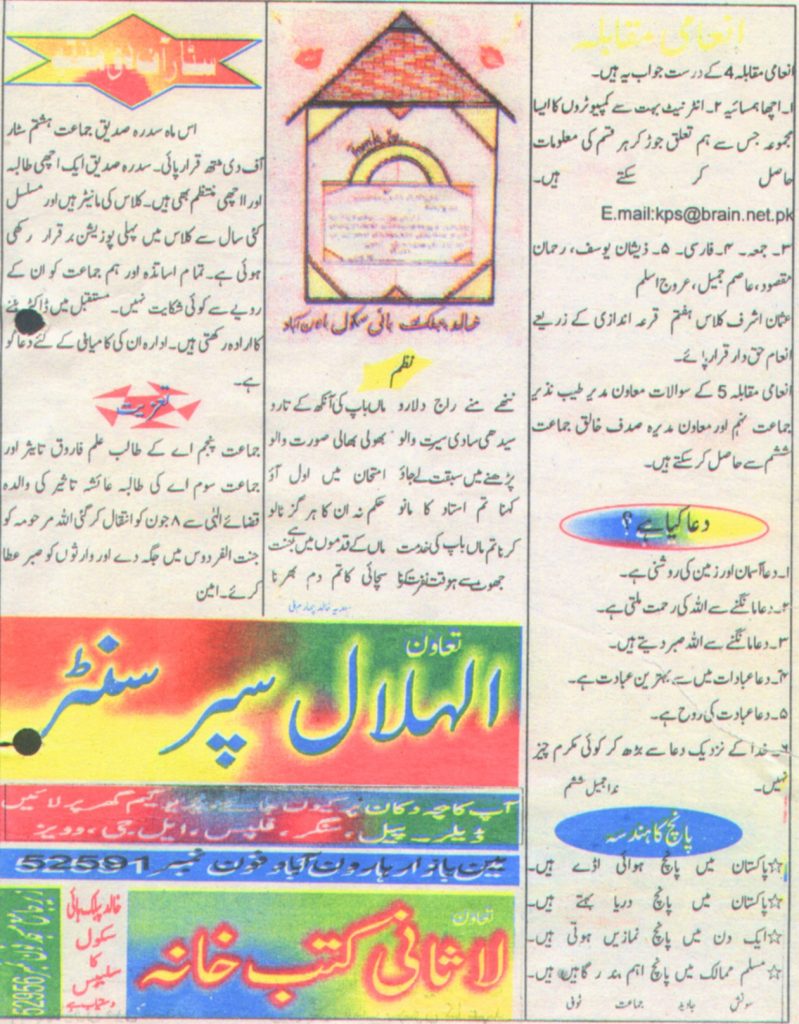 انعامی مقابلہ
انعامی مقابلہ 4 کے درست جواب یہ ہیں۔
۱۔ اچھا ہمسایہ ۲۔ انٹرنیٹ بہت سے کمپیوٹروں کا ایسا
مجموعہ جس سے ہم تعلق جوڑ کر ہر قسم کی معلومات
حاصل کر سکتے ہیں۔
E.mail:kps@brain.net.pk
۳۔ جمعہ۔ ۴۔ فارسی۔ ۵۔ ذیشان یوسف، رحمان
مقصود، عاصم جمیل، عروج اسلم
عثمان اشرف کلاس ہفتم قرعہ اندازی کے ذریعے
انعام حق دار قرار پائے۔
انعامی مقابلہ 5 کے سوالات معاون مدیر طیب نذیر
جماعت نہم اور معاون مدیرہ صدف خالق جماعت
ششم سے حاصل کر سکتے ہیں۔
دعا کیا ہے؟
۱۔ دعا آسمان اور زمین کی روشنی ہے۔
۲۔ دعا مانگنے سے اللہ کی رحمت ملتی ہے۔
۳۔ دعا مانگنے سے اللہ صبر دیتے ہیں۔
۴۔ دعا عبادات میں سے بہترین عبادت ہے۔
۵۔ دعا عبادت کی روح ہے۔
۶۔ خدا کے نزدیک دعا سے بڑھ کر کوئی مکرم چیز
نہیں۔ ندا جمیل ششم
پانچ کا ہندسہ
☆پاکستان میں پانچ ہوائی اڈے ہیں۔
☆پاکستان میں پانچ دریا بہتے ہیں۔
☆ایک دن میں پانچ نمازیں ہوتی ہیں۔
☆مسلم ممالک میں پانچ اہم بندرگاہیں ہیں۔
جاوید جماعت
خالد پبلک ہائی سکول ہارون آباد
نظم
ننھے منے راج دلارو ماں باپ کی آنکھ کے تارو
سیدھی سادی سیرت والو بھولی بھالی صورت والو
پڑھنے میں سبقت لے جاؤ امتحان میں اول آؤ
کہنا تم استاد کا مانو حکم نہ ان کا ہرگز ٹالو
کرنا تم ماں باپ کی خدمت ماں کے قدموں میں ہے جنت
جھوٹ سے ہر وقت نفرت کرنا سچائی کا تم دم بھرنا
سٹار آف دی منتھ
اس ماہ سدرہ صدیق جماعت ہشتم سٹار
آف دی منتھ قرار پائی۔ سدرہ صدیق ایک اچھی طالبہ
اور اچھی منتظم بھی ہیں۔ کلاس کی مانیٹر ہیں اور مسلسل
کئی سال سے کلاس میں پہلی پوزیشن برقرار رکھی
ہوئی ہے۔ تمام اساتذہ اور ہم جماعت کو ان کے
رویے سے کوئی شکایت نہیں۔ مستقبل میں ڈاکٹر بننے
کا ارادہ رکھتی ہیں۔ ادارہ ان کی کامیابی کے لئے دعا گو
ہے۔
تعزیت
جماعت پنجم اے کے طالب علم فاروق تاثیر اور
جماعت سوم اے کی طالبہ عائشہ تاثیر کی والدہ
قضائے الٰہی سے ۸ جون کو انتقال کر گئی اللہ مرحومہ کو
جنت الفردوس میں جگہ دے اور وارثوں کو صبر عطا
کرے۔ امین
تعاون
الہلال سپر سنٹر
ڈیلر۔ پیل، سنگر، فلپس، ایل۔ جی، وویز
مین بازار ہارون آباد فون نمبر 52591
تعاون
لاثانی کتب خانہ
خالد پبلک ہائی
سکول
کا
سلیبس
دستیاب ہے
فون نمبر 52956